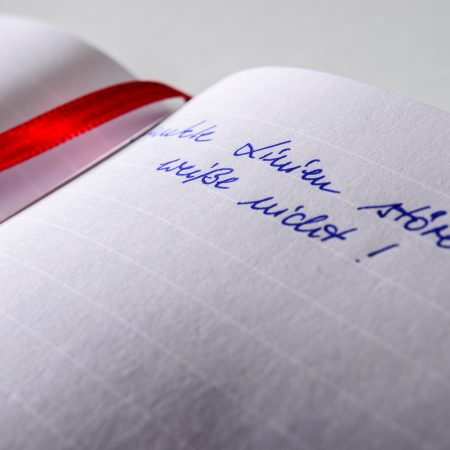 Dunkle Linien störe
weiße nicht!